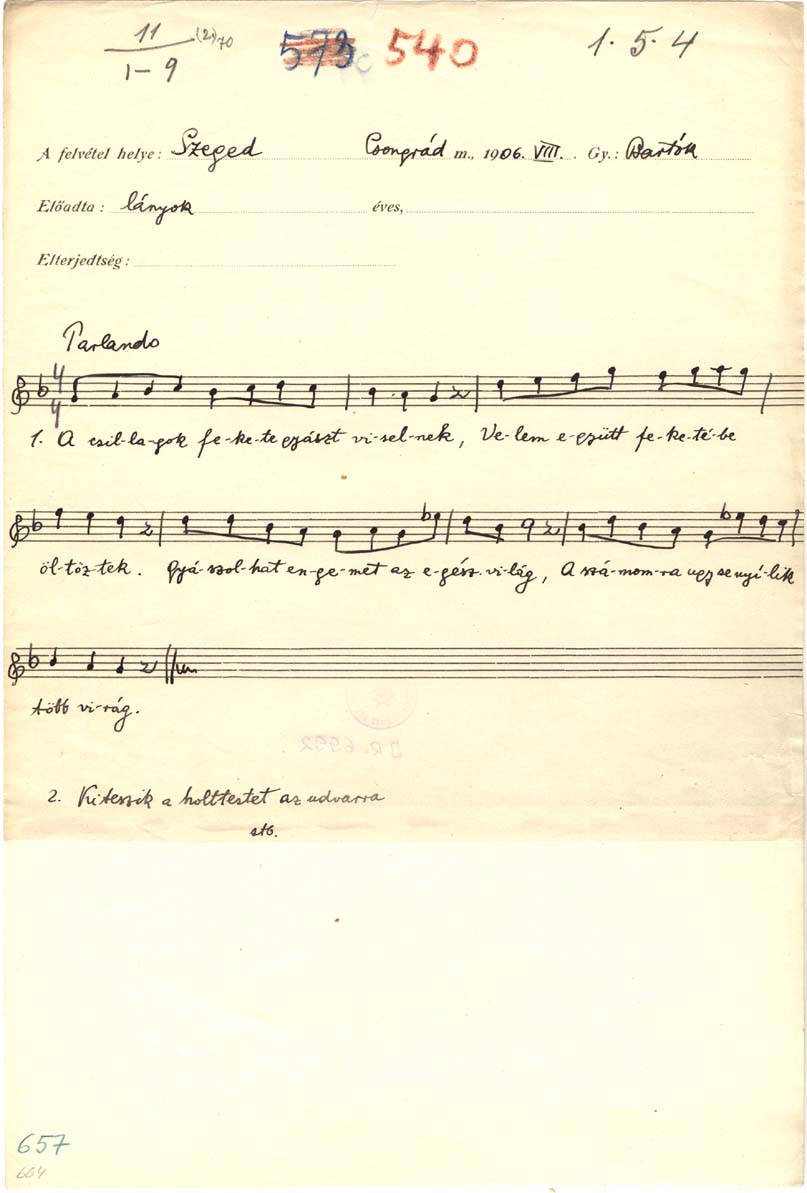 11 (2) 70 573 540 1.5.4
1-9
A felvétel helye: Szeged Csongrád m., 1906. VIII. Gy.: Bartók
Előadta: lányok éves,
Elterjedtség:
Parlando
4
4
1. A csil-la-gok fe-ke-te gyászt vi-sel-nek, Ve-lem e-gyütt fe-ke-té-be
öl-töz-tek. Gyá-szol-hat en-ge-met az e-gész vi-lág, A szá-mom-ra ugyse nyí-lik
több vi-rág.
2. Kiteszik a holttestet az udvarra
stb.
657
664